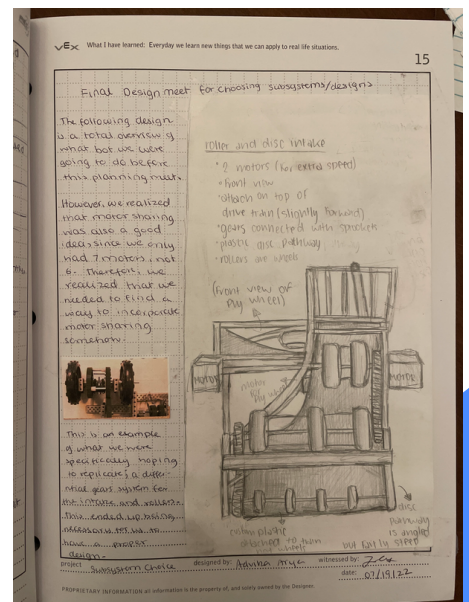 vex What I have learned: Everyday we learn new things that we can apply to real life situations.
15
Final Design meet for choosing subsystems/designs
The following design
is a total overview of
what bot we were
going to do before
this planning meet.
However, we realized
that motor sharing
was also a good
idea, since we only
had 7 motors, not
6. Therefore, we
realized that we
needed to find a
way to incorporate
motor sharing
somehow.
This is an example
of what we were
specifically hoping
to replicate; a differ-
ntial gears system for
the intake and rollers.
This ended up being
necessary for us to
have a proper
design.
roller and disc intake
• 2 motors (for extra speed)
• front view
• attach on top of
drive train (slightly forward)
• gears connected with sprockets
• plastic disc pathway
• rollers are wheels
(front view of
fly wheel)
MOTOR
motor
for
fly wheel
MOTOR
disc
pathway
is angled
but fairly steep
plastic
attached to turn
wheels
project Subsystem Choice designed by: Advika Arya witnessed by:
date: 07/19/22
PROPRIETARY INFORMATION all information is the property of, and solely owned by the Designer.